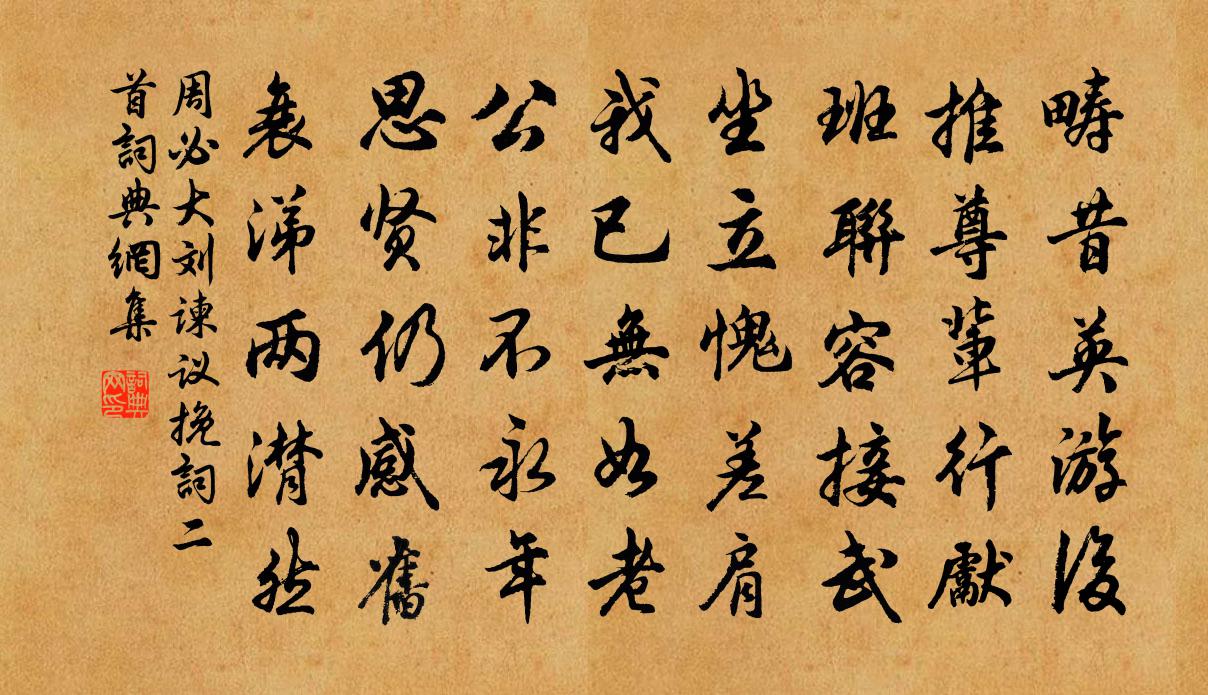 畴昔英游後
推尊輩行獻
班聯容接武
坐立愧差肩
我已無如老
公非不永年
思贤仍感舊
衰涕两潸然
周必大刘諫议挽詞二
首詞典網集
詞典
网印